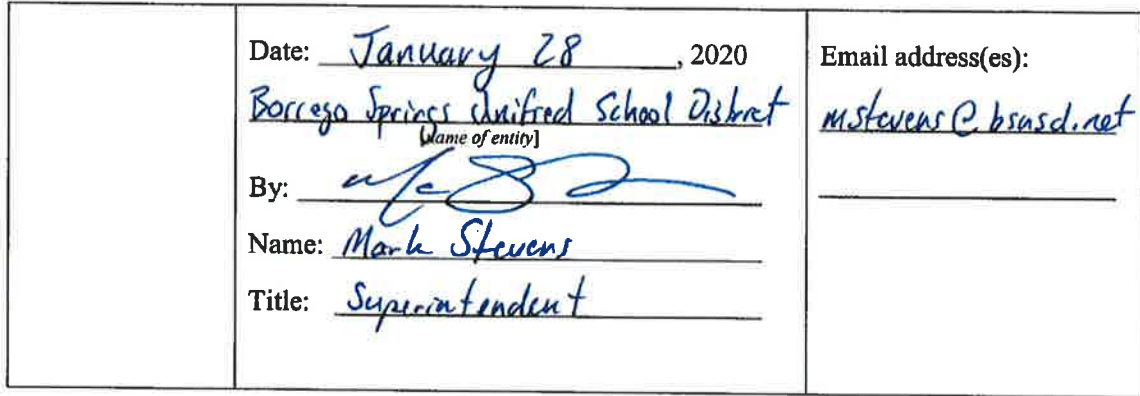 Date: January 28, 2020
Borrego Springs Unified School District
[Name of entity]
By:
Name: Mark Stevens
Title: Superintendent
Email address(es):
mstevens@bsusd.net